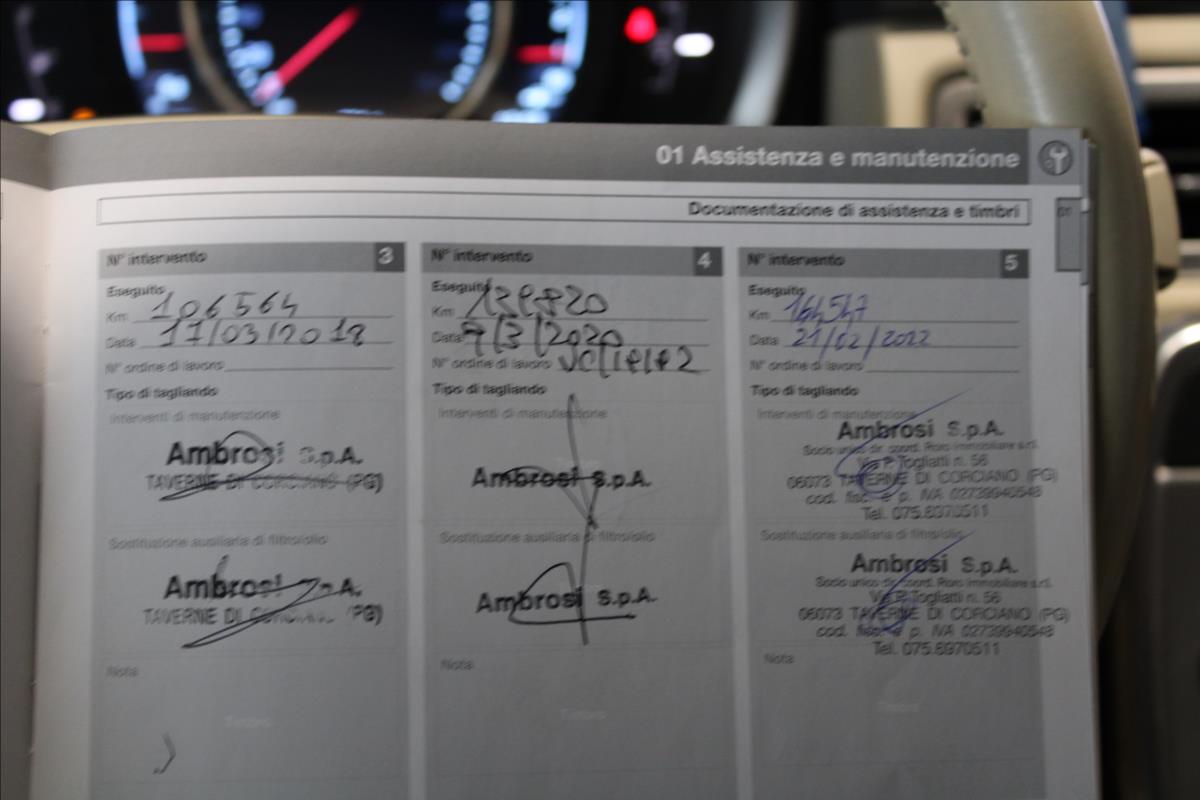 01 Assistenza e manutenzione
Documentazione di assistenza e timbri
N° intervento 3
Eseguito
Km 106564
Data 17/03/2018
N° ordine di lavoro
Tipo di tagliando
Interventi di manutenzione
Ambrosi S.p.A.
TAVERNE DI CORCIANO (PG)
Sostituzione ausiliaria di filtro/olio
Ambrosi S.p.A.
TAVERNE DI CORCIANO (PG)
Nota
Timbro
N° intervento 4
Eseguito
Km 139820
Data 9/3/2020
N° ordine di lavoro
Tipo di tagliando
Interventi di manutenzione
Ambrosi S.p.A.
Sostituzione ausiliaria di filtro/olio
Ambrosi S.p.A.
Nota
Timbro
N° intervento 5
Eseguito
Km 164547
Data 21/02/2022
N° ordine di lavoro
Tipo di tagliando
Interventi di manutenzione
Ambrosi S.p.A.
Socio unico dir. coord. Roro Immobiliare s.r.l.
Via P. Togliatti n. 56
06073 TAVERNE DI CORCIANO (PG)
cod. fisc. e p. IVA 02739940548
Tel. 075.6970511
Sostituzione ausiliaria di filtro/olio
Ambrosi S.p.A.
Socio unico dir. coord. Roro Immobiliare s.r.l.
Via P. Togliatti n. 56
06073 TAVERNE DI CORCIANO (PG)
cod. fisc. e p. IVA 02739940548
Tel. 075.6970511
Nota
Timbro
01